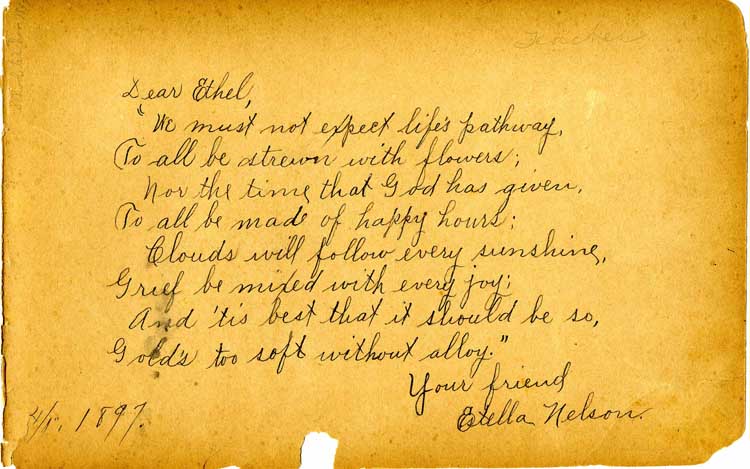 Teacher
Dear Ethel,
"We must not expect life's pathway,
To all be strewn with flowers;
Nor the time that God has given,
To all be made of happy hours;
Clouds will follow every sunshine,
Grief be mixed with every joy;
And 'tis best that it should be so,
Golds too soft without alloy."
Your friend
Estella Nelson.
1897.